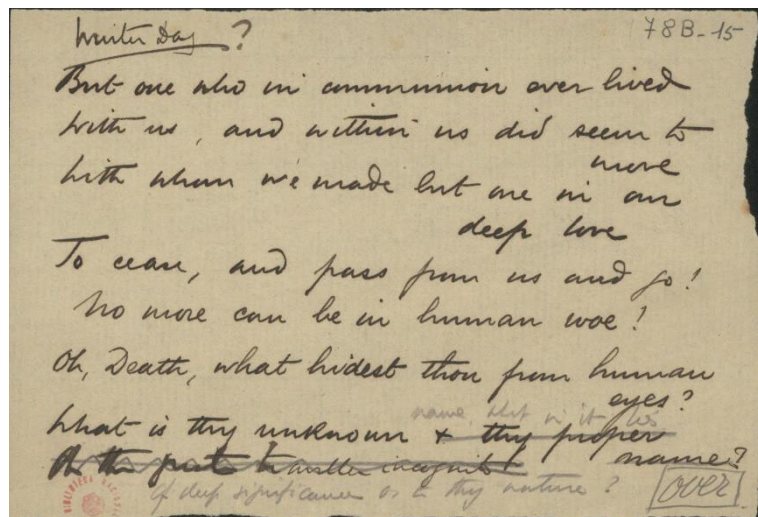 Winter Day ?
78B-15
But one who in communion ever lived
With us, and within us did seem to
move
With whom we made but one in our
deep love
To cease, and pass from us and go!
No more can be in human woe!
Oh, Death, what hidest thou from human
eyes?
name, that in it lies
What is thy unknown & thy proper
name?
Of the great traveller incognito
Of deep significance as to thy nature ?
over